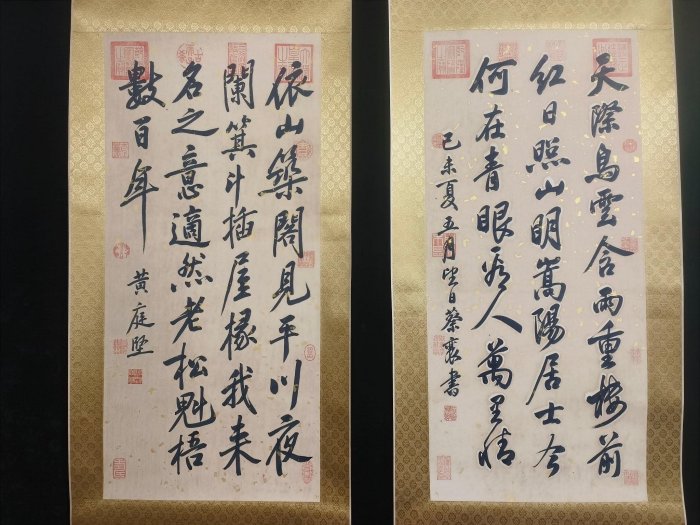 天際烏雲含雨重樓前
紅日照山明嵩陽居士今
何在青眼看人萬里情
己未夏五月望日蔡襄書
依山築閣見平川夜
闌箕斗插屋椽我來
名之意適然老松魁梧
數百年
黃庭堅